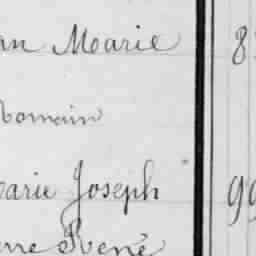 an Marie 8
Romain
arie Joseph 99
ne René